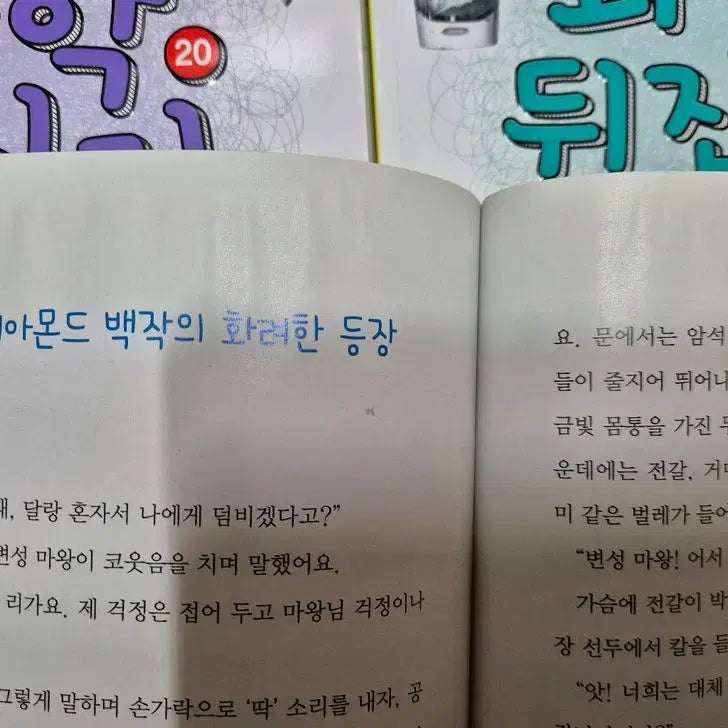 20
뒤
백작의 화려한 등장
달랑 혼자서 나에게 덤비겠다고?”
마왕이 코웃음을 치며 말했어요.
리가요. 제 걱정은 접어 두고 마왕님 걱정이나
그렇게 말하며 손가락으로 ‘딱’ 소리를 내자, 공
요. 문에서는 암석
들이 줄지어 뛰어나
금빛 몸통을 가진
운데에는 전갈,
미 같은 벌레가 들어
“변성 마왕! 어서
가슴에 전갈이 박
장 선두에서 칼을
“앗! 너희는 대체